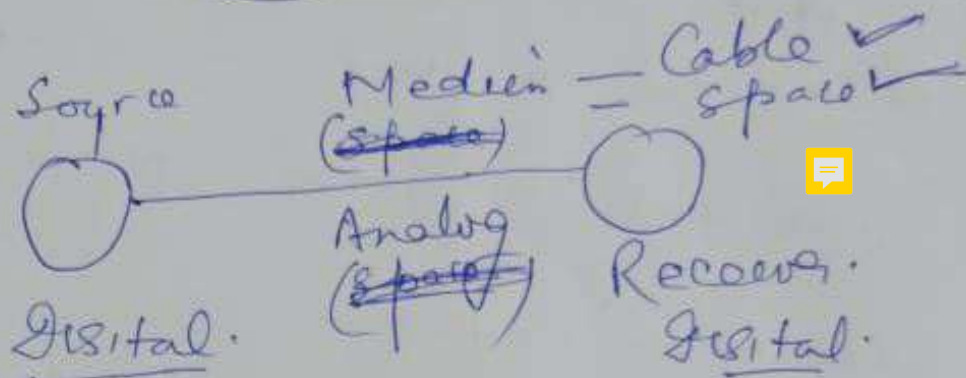 Source
Medium – Cable ✓
– space ✓
(space)
Analog
(space)
Receaver.
Digital.
Digital.